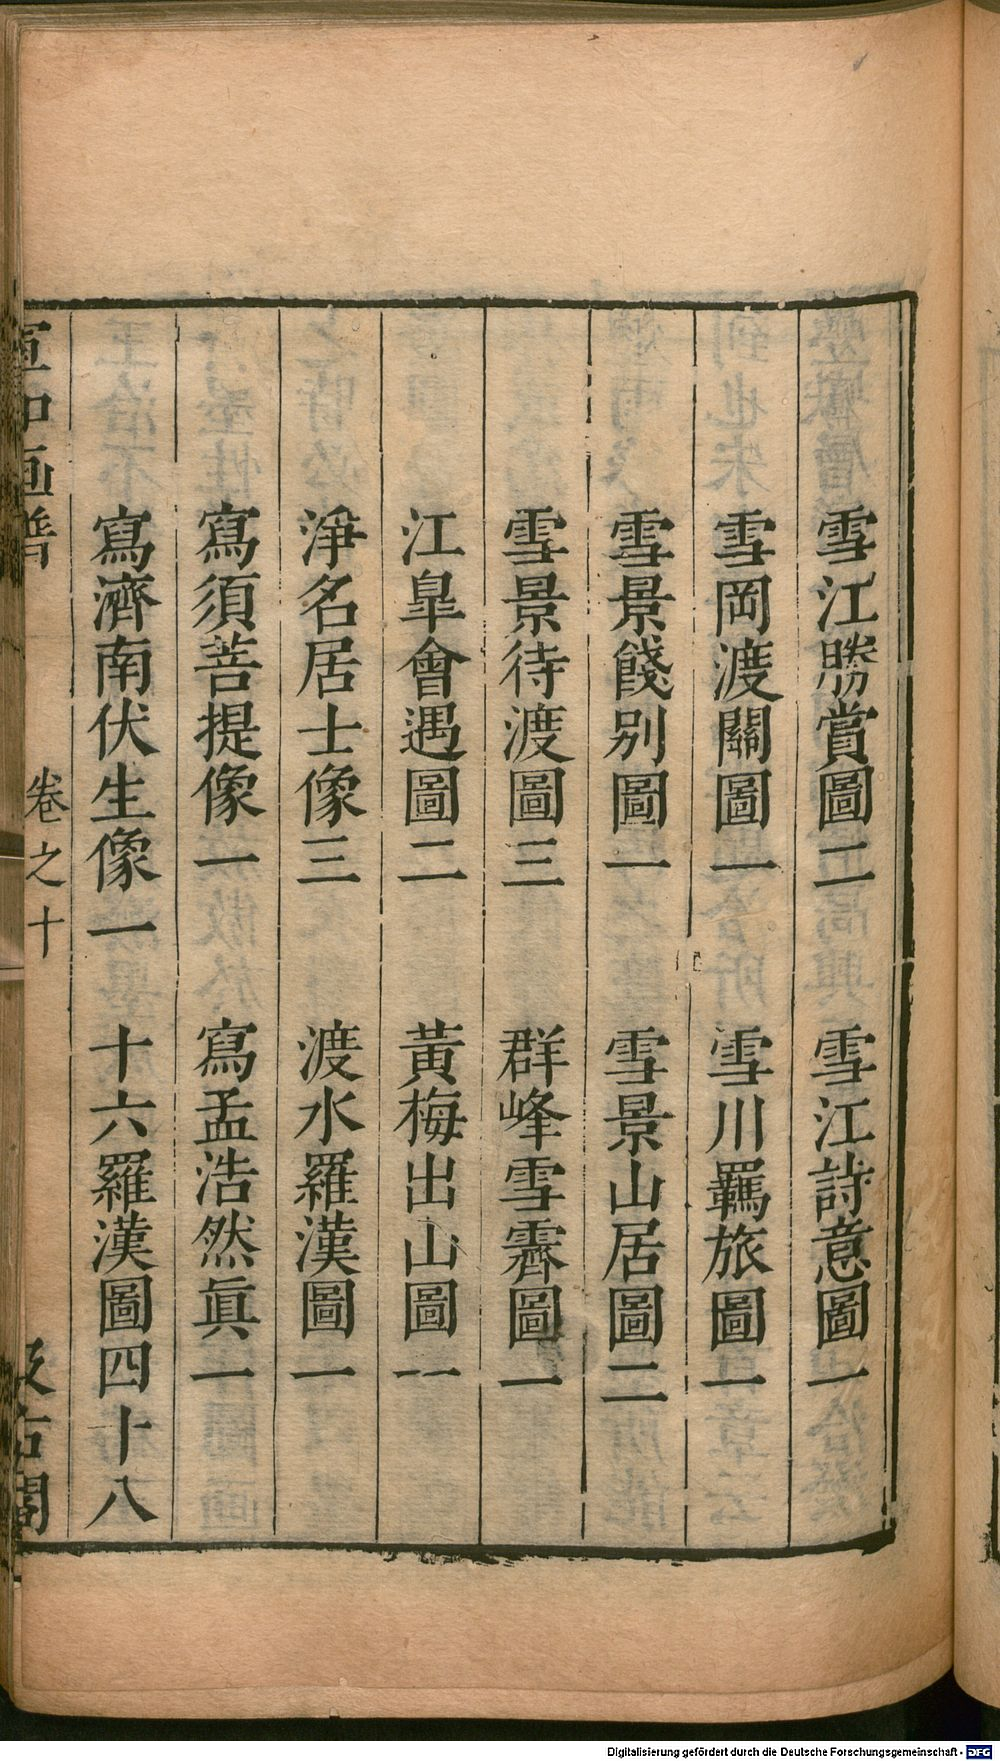 雪江勝賞圖二　雪江詩意圖一
雪岡渡關圖一　雪川羈旅圖一
雪景餞別圖一　雪景山居圖二
雪景待渡圖三　群峰雪霽圖一
江皐會遇圖二　黃梅出山圖一
淨名居士像三　渡水羅漢圖一
寫須菩提像一　寫孟浩然眞一
寫濟南伏生像一　十六羅漢圖四十八
宣和画譜　卷之十　汲古閣
Digitalisierung gefördert durch die Deutsche Forschungsgemeinschaft - DFG